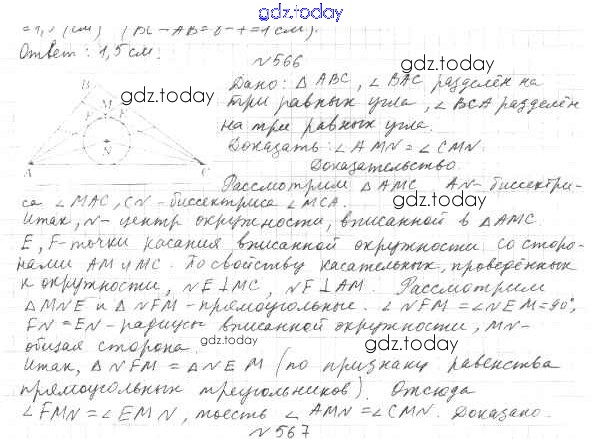 gdz.today
=1,5 (см) (BC - AB = 8 - 7 = 1 см).
Ответ: 1,5 см.
№566
gdz.today
gdz.today
Дано: △ABC, ∠BAC разделён на
три равных угла, ∠BCA разделён
на три равных угла.
Доказать: ∠AMN = ∠CMN.
Доказательство.
B
M
F
E
N
A
C
Рассмотрим △AMC AN - биссектри-
са ∠MAC, CN - биссектриса ∠MCA.
gdz.today
Итак, N - центр окружности, вписанной в △AMC.
E, F - точки касания вписанной окружности со сторо-
нами AM и MC. По свойству касательных, проведённых
к окружности, NE⊥MC, NF⊥AM. Рассмотрим
gdz.today
△MNE и △NFM - прямоугольные. ∠NFM = ∠NEM = 90°,
FN = EN - радиусы вписанной окружности, MN -
общая сторона.
gdz.today
gdz.today
Итак, △NFM = △NEM (по признаку равенства
прямоугольных треугольников). Отсюда
∠FMN = ∠EMN, то есть ∠AMN = ∠CMN. Доказано.
№567
gdz.today